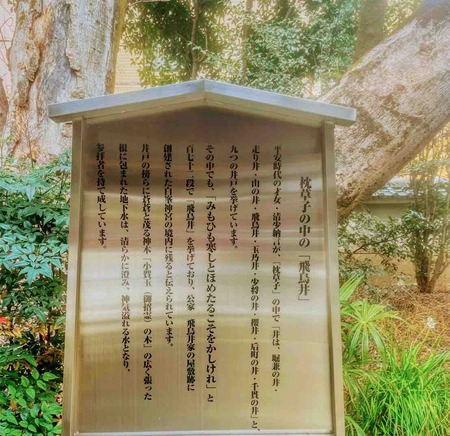 枕草子の中の「飛鳥井」
平安時代の才女・清少納言が、「枕草子」の中で「井は、堀兼の井・
走り井・山の井・飛鳥井・玉乃井・少将の井・櫻井・后町の井・千貫の井」と、
九つの井戸を挙げています。
その中でも、「みもひも寒しとほめたるこそをかしけれ」と
百七十一段で「飛鳥井」を挙げており、公家 飛鳥井家の屋敷跡に
創建された白峯神宮の境内に残ると伝えられています。
井戸の傍らに蒼蒼と茂る神木「小賀玉（御招霊）の木」の広く張った
根に包まれた地下水は、清らかに澄み、神気溢れる水となり、
参拝者を持て成しています。